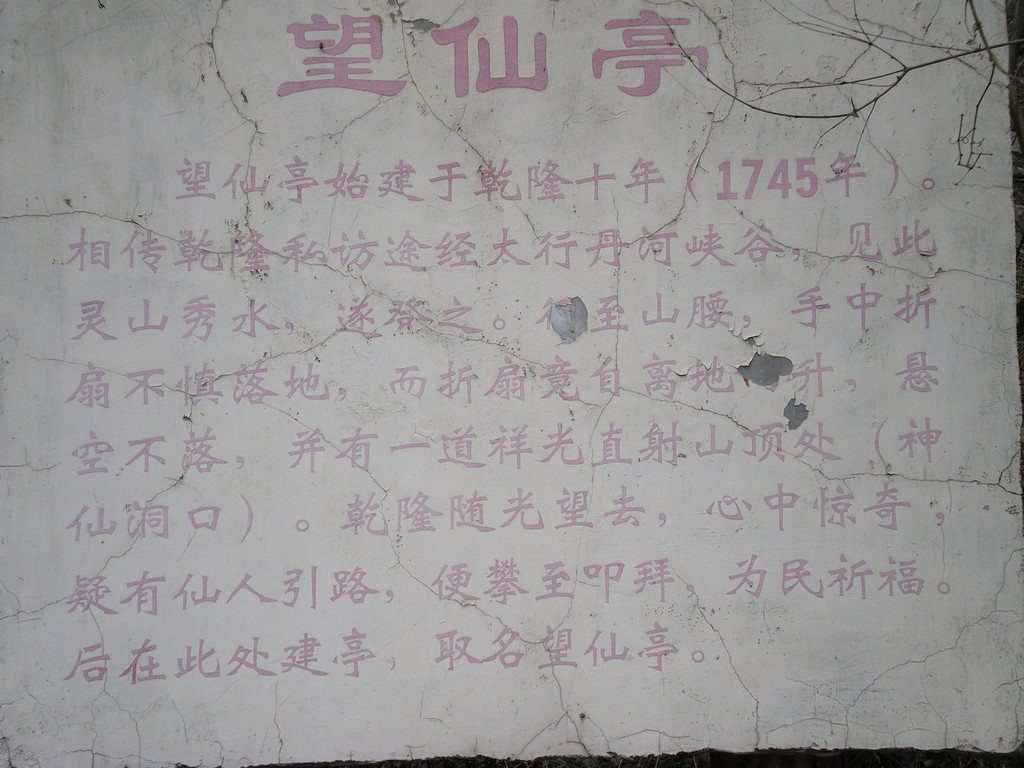 望仙亭
望仙亭始建于乾隆十年（1745年）。
相传乾隆私访途经太行丹河峡谷，见此
灵山秀水，遂登之。至山腰，手中折
扇不慎落地，而折扇竟自离地升，悬
空不落，并有一道祥光直射山顶处（神
仙洞口）。乾隆随光望去，心中惊奇，
疑有仙人引路，便攀至叩拜，为民祈福。
后在此处建亭，取名望仙亭。